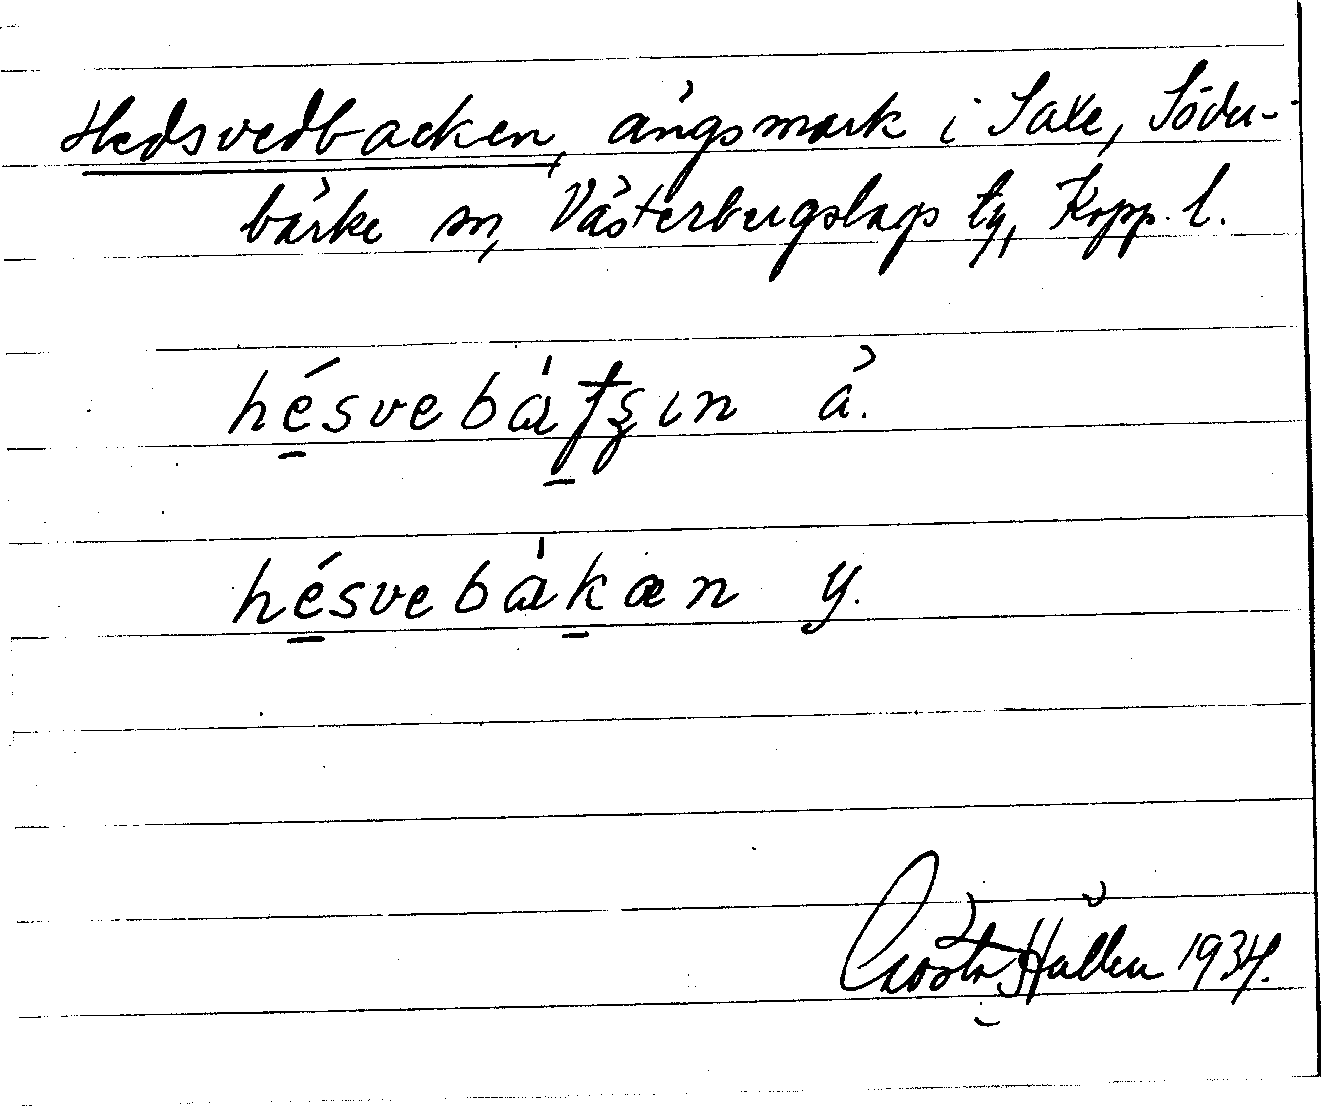 Hedsvedbacken, ängsmark i Saxe, Söder-
bärke sn, Västerbergslags tg, Kopp. l.
hésvebàʈʂın ä.
hésvebàkæn y.
Gösta Hallén 1934.